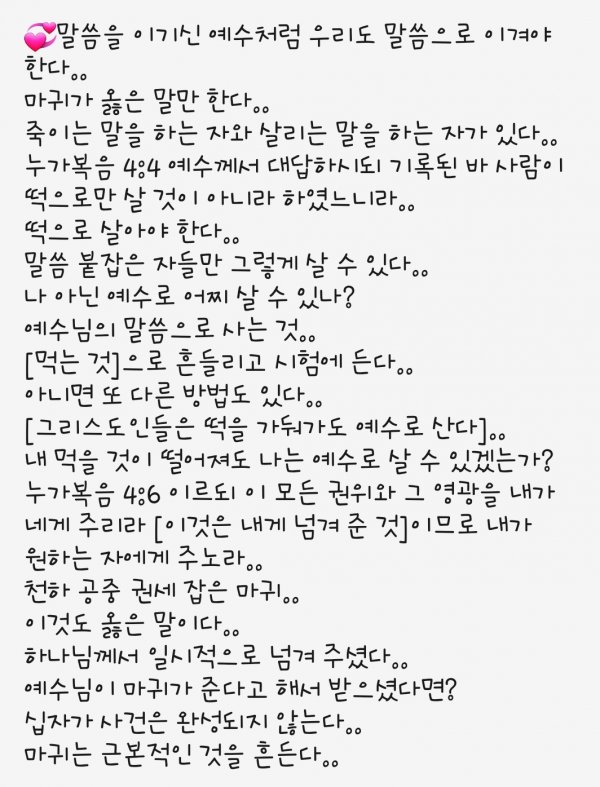 💞말씀을 이기신 예수처럼 우리도 말씀으로 이겨야
한다。。
마귀가 옳은 말만 한다。。
죽이는 말을 하는 자와 살리는 말을 하는 자가 있다。。
누가복음 4:4 예수께서 대답하시되 기록된 바 사람이
떡으로만 살 것이 아니라 하였느니라。。
떡으로 살아야 한다。。
말씀 붙잡은 자들만 그렇게 살 수 있다。。
나 아닌 예수로 어찌 살 수 있나?
예수님의 말씀으로 사는 것。。
[먹는 것]으로 흔들리고 시험에 든다。。
아니면 또 다른 방법도 있다。。
[그리스도인들은 떡을 가둬가도 예수로 산다]。。
내 먹을 것이 떨어져도 나는 예수로 살 수 있겠는가?
누가복음 4:6 이르되 이 모든 권위와 그 영광을 내가
네게 주리라 [이것은 내게 넘겨 준 것]이므로 내가
원하는 자에게 주노라。。
천하 공중 권세 잡은 마귀。。
이것도 옳은 말이다。。
하나님께서 일시적으로 넘겨 주셨다。。
예수님이 마귀가 준다고 해서 받으셨다면?
십자가 사건은 완성되지 않는다。。
마귀는 근본적인 것을 흔든다。。